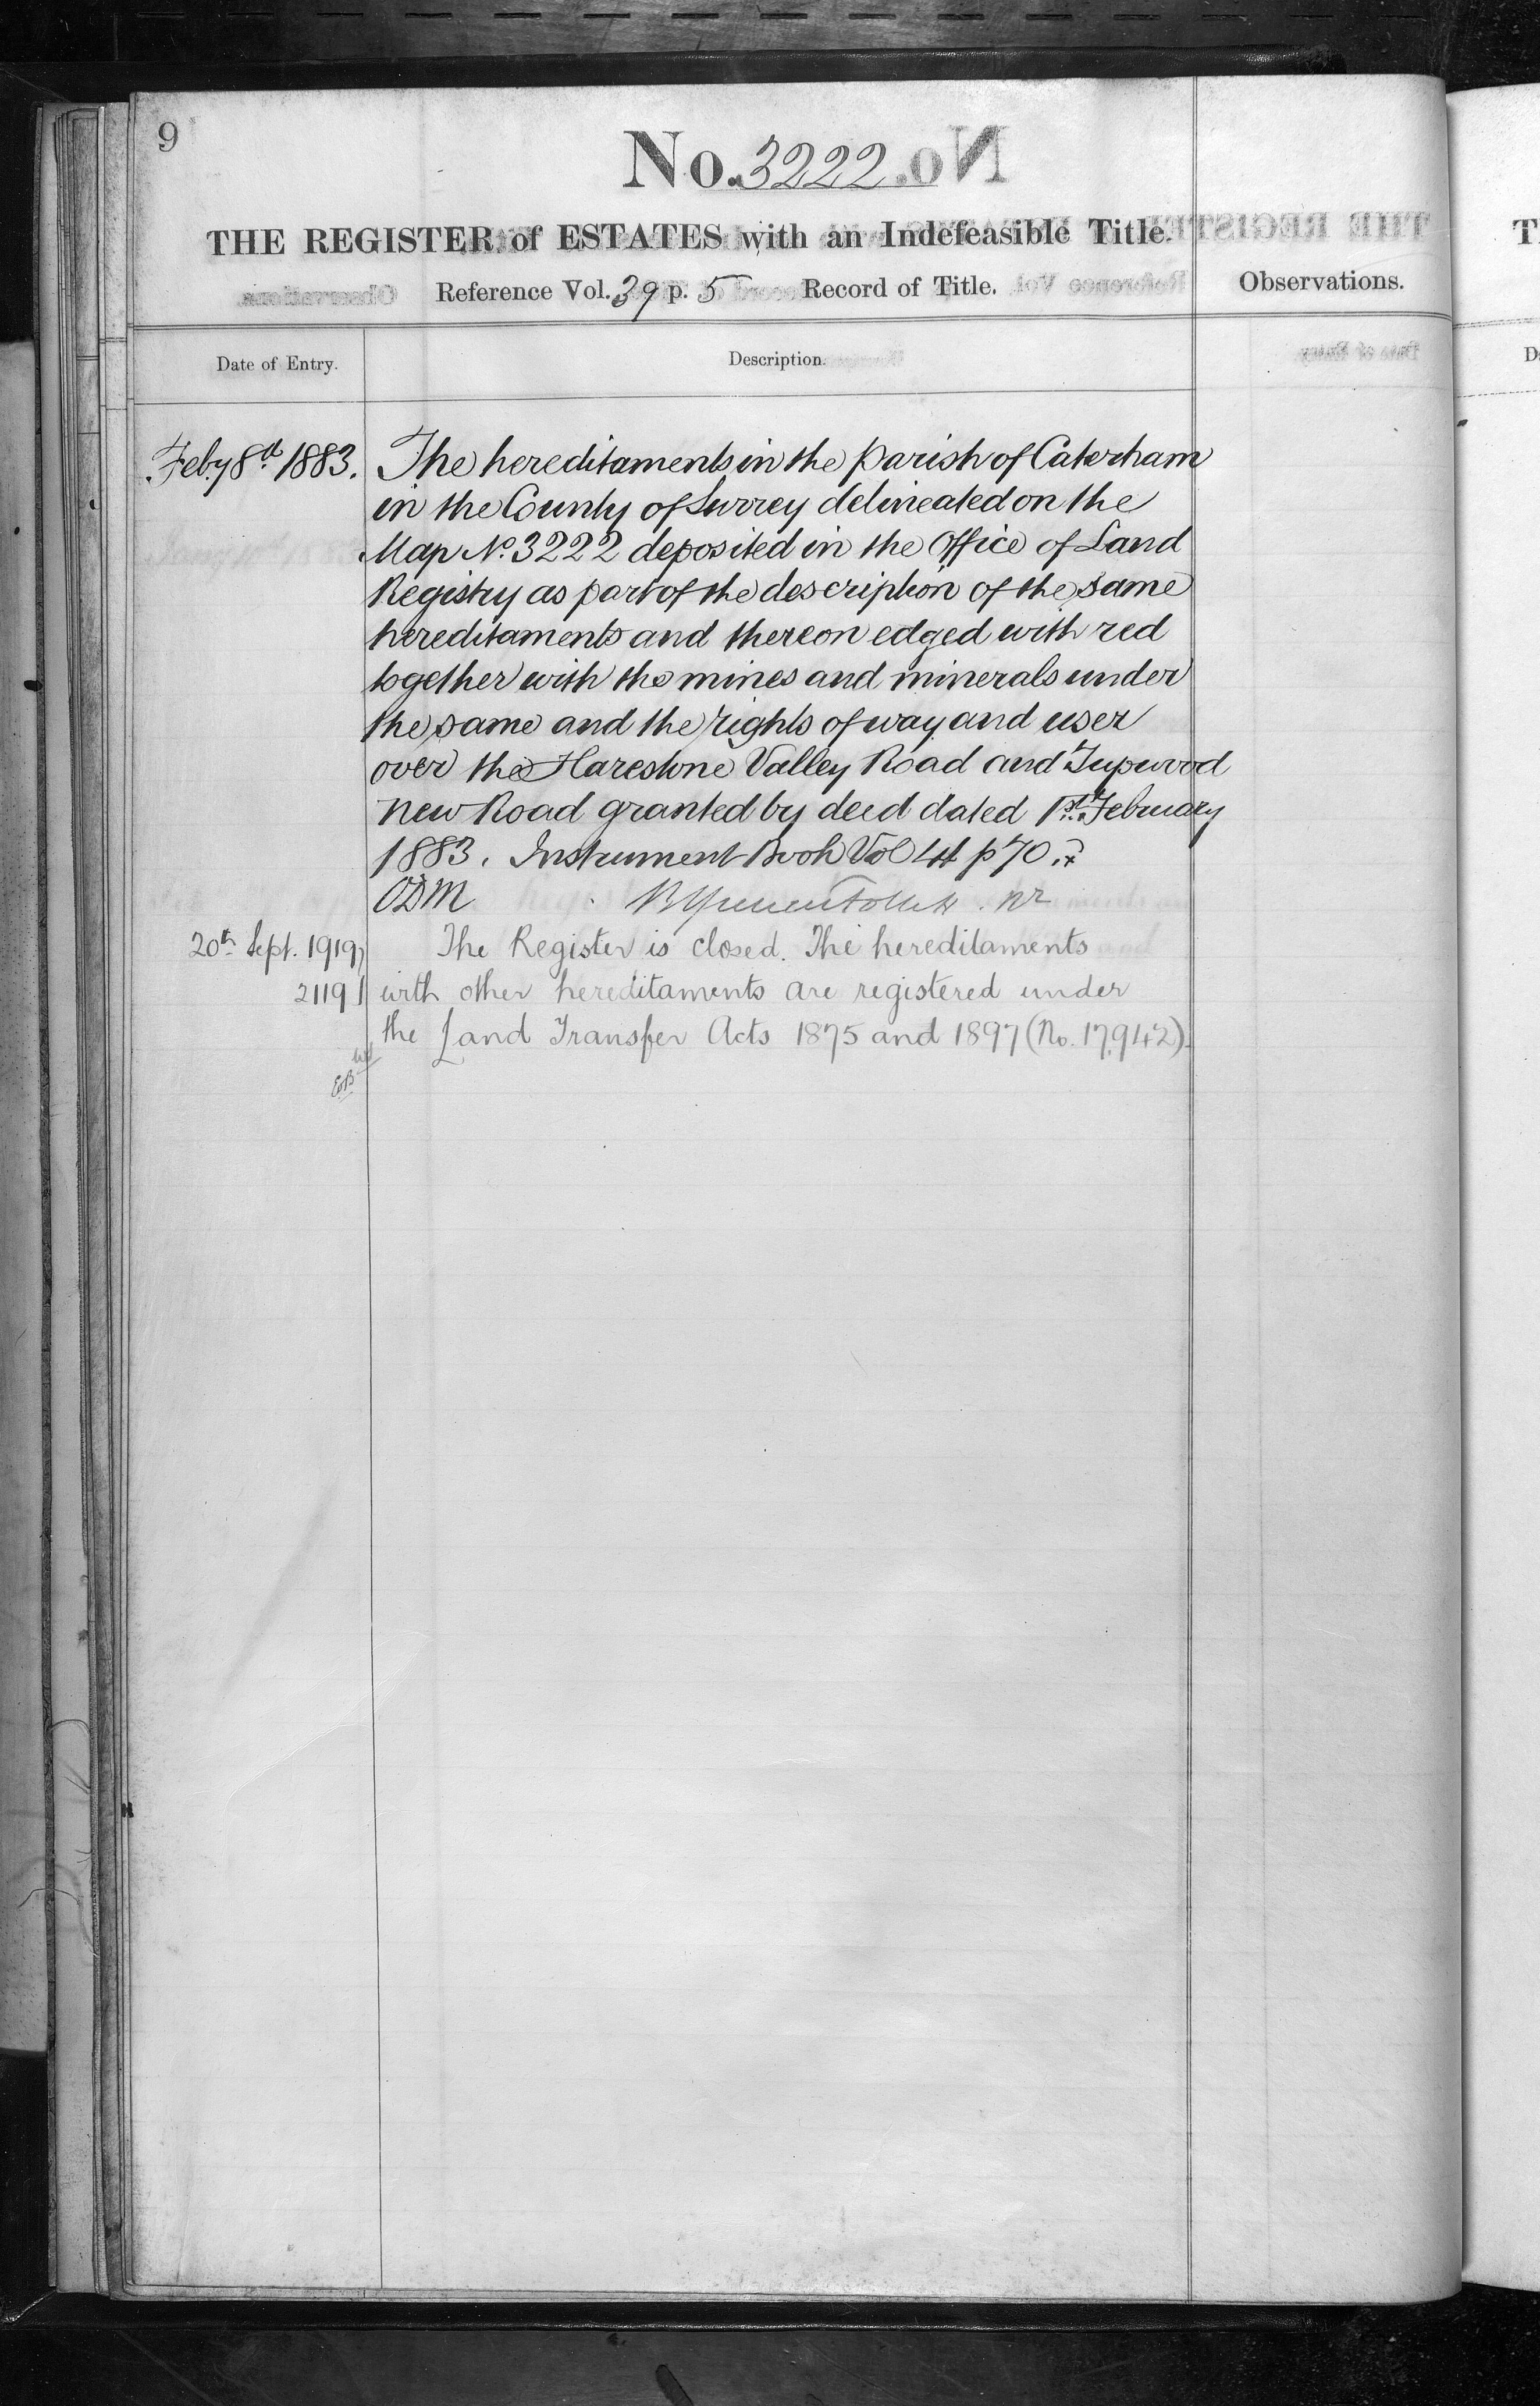 9
No. 3222
THE REGISTER of ESTATES with an Indefeasible Title.
Reference Vol. 39 p. 5 Record of Title.
Observations.
Date of Entry.
Description.
Feby 8th 1883.
The hereditaments in the parish of Caterham
in the County of Surrey delineated on the
Map No. 3222 deposited in the Office of Land
Registry as part of the description of the same
hereditaments and thereon edged with red
together with the mines and minerals under
the same and the rights of way and user
over the Harestone Valley Road and Tupwood
New Road granted by deed dated 1st February
1883. Instrument Book Vol 44 p 70.
ODM
20th Sept. 1919
21191
The Register is closed. The hereditaments
with other hereditaments are registered under
the Land Transfer Acts 1875 and 1897 (No. 17,942).